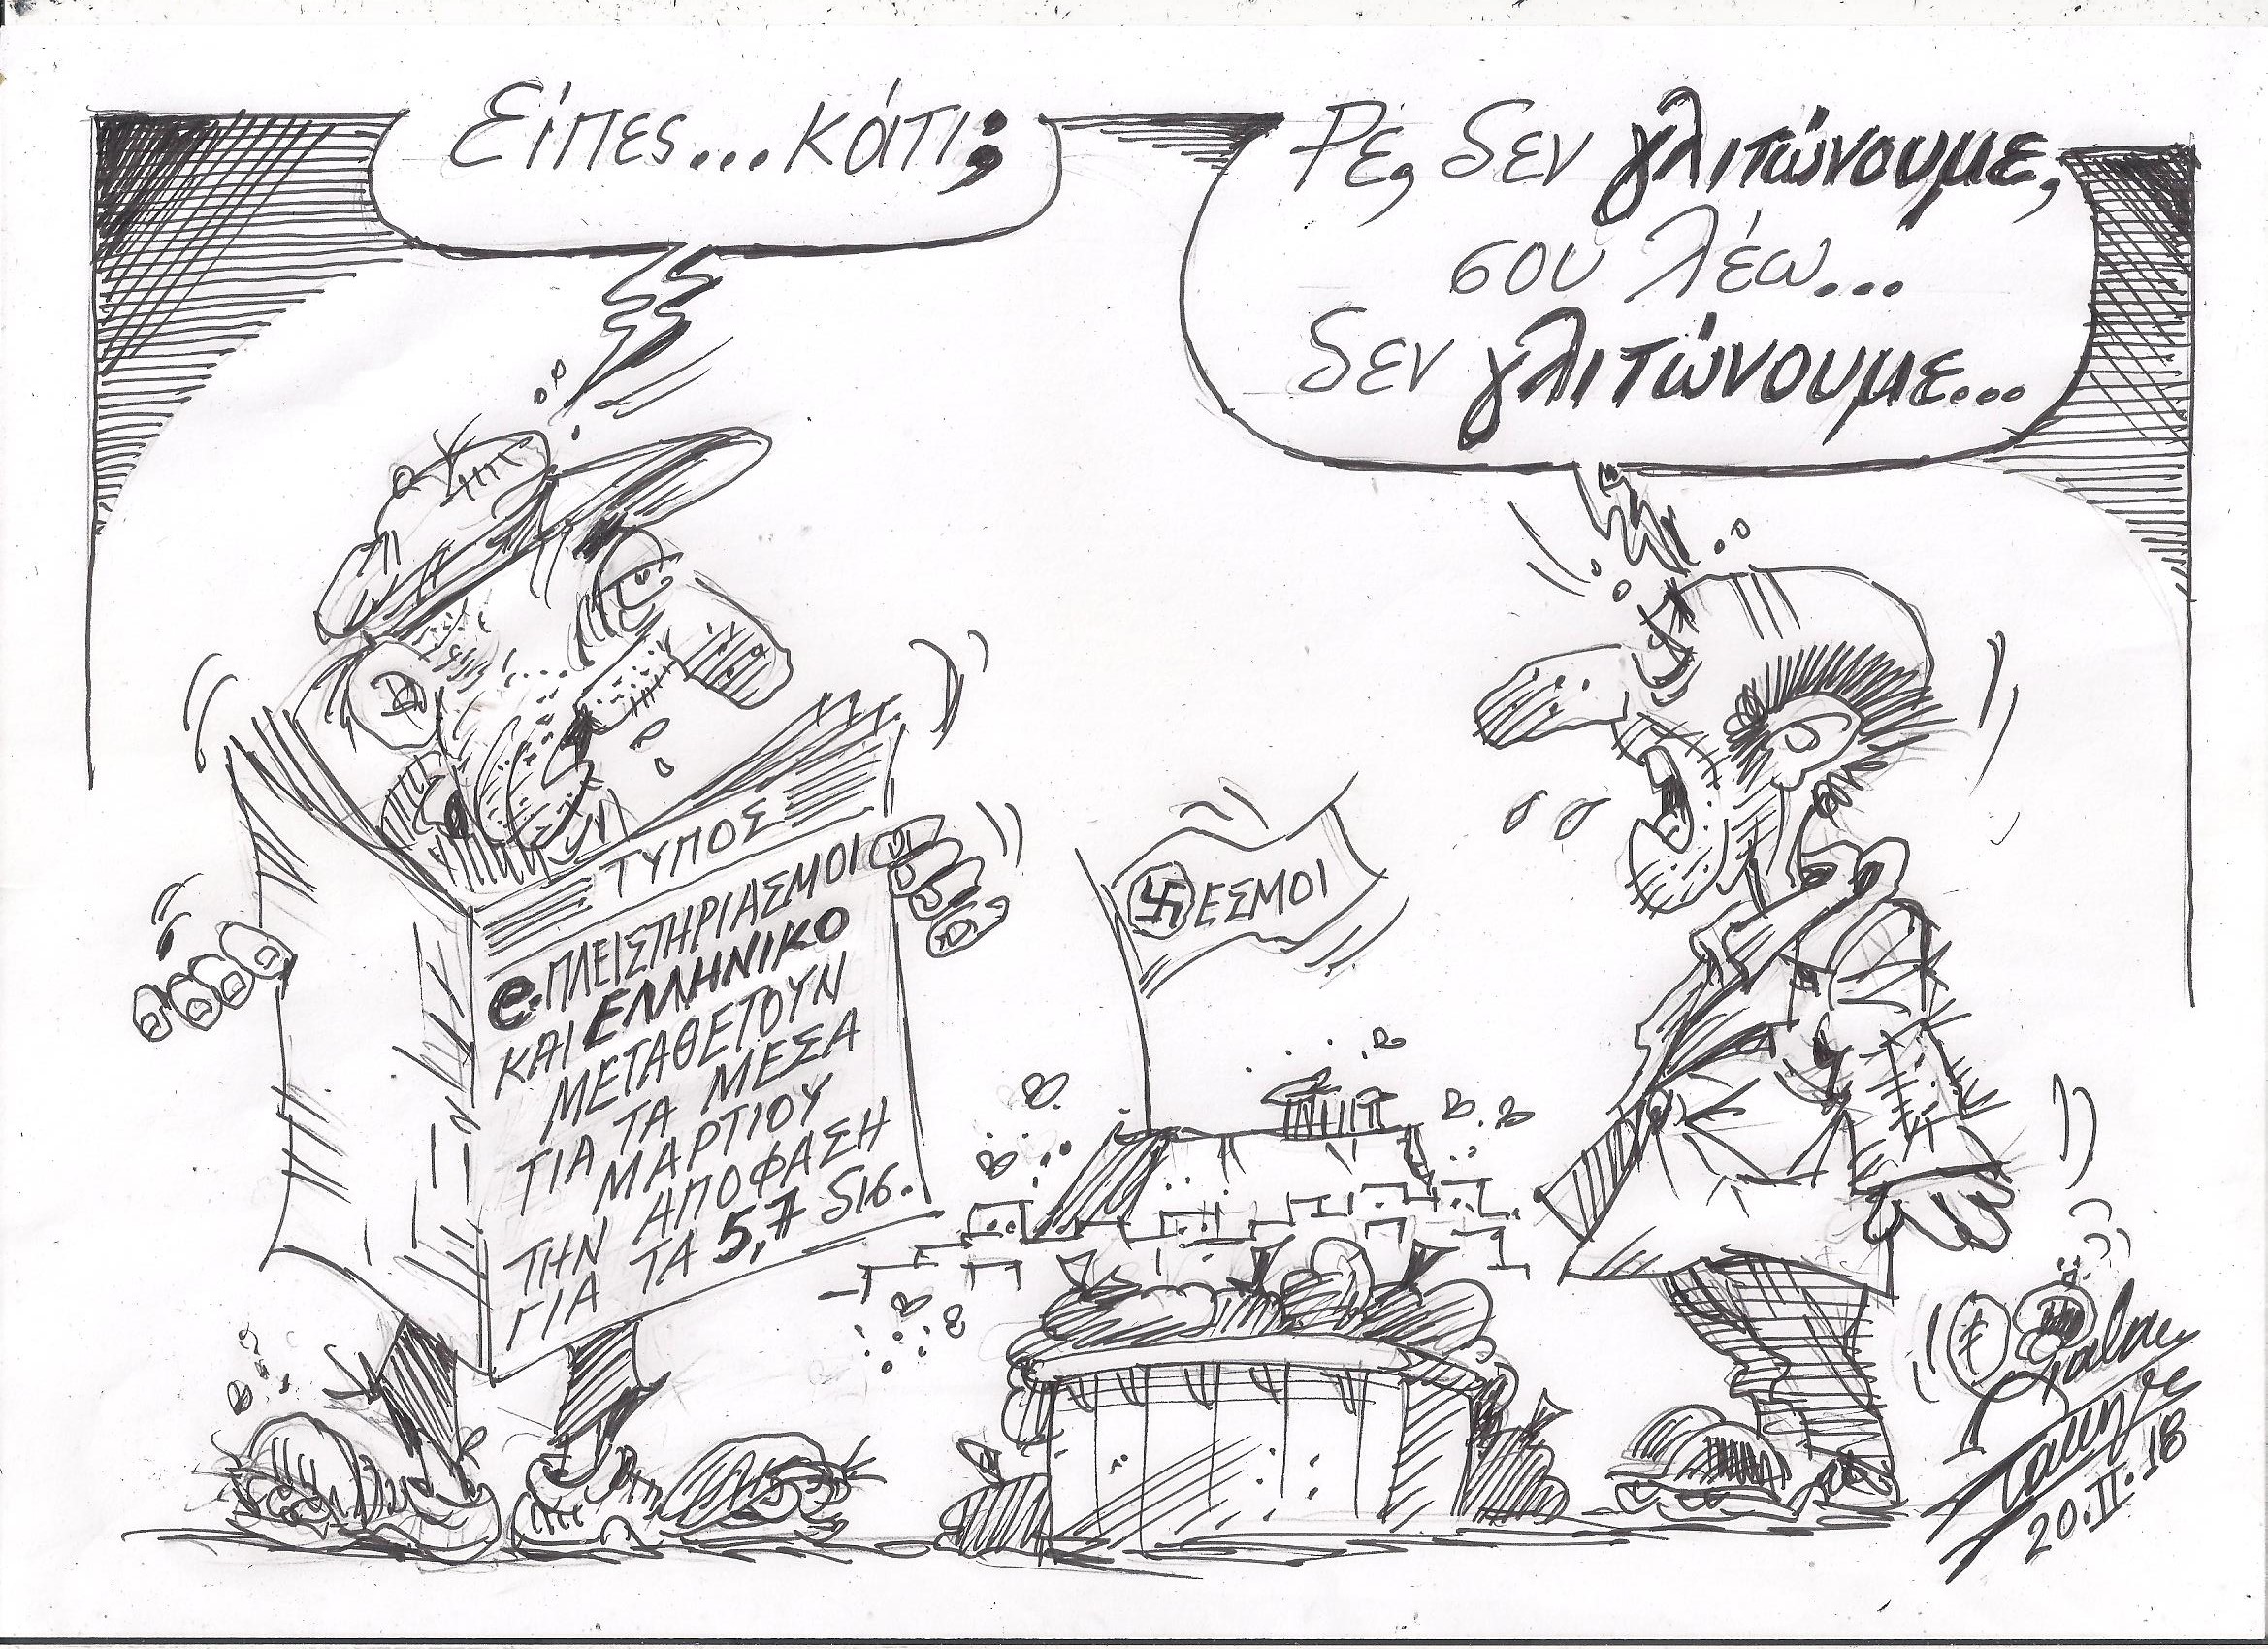 Είπες...κάτι;
Ρε, δεν γλιτώνουμε,
σου λέω...
δεν γλιτώνουμε...
ΤΥΠΟΣ
e-ΠΛΕΙΣΤΗΡΙΑΣΜΟΙ
ΚΑΙ ΕΛΛΗΝΙΚΟ
ΜΕΤΑΘΕΤΟΥΝ
ΓΙΑ ΤΑ ΜΕΣΑ
ΜΑΡΤΙΟΥ
ΤΗΝ ΑΠΟΦΑΣΗ
ΓΙΑ ΤΑ 5,7 δις.
卐ΕΣΜΟΙ
20.II.18